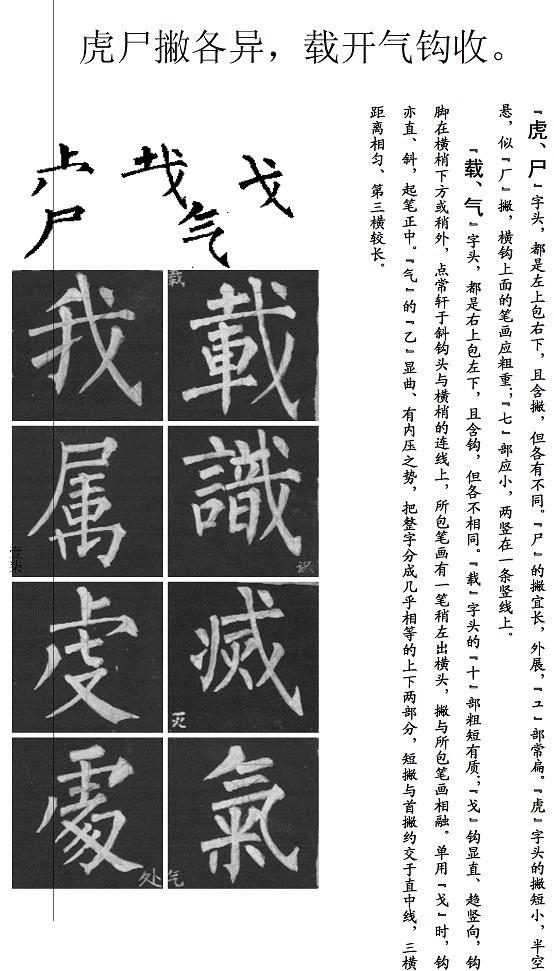 虎尸撇各异，载开气钩收。
『虎、尸』字头，都是左上包右下，且含撇，但各有不同。『尸』的撇宜长，外展，『ユ』部常扁。『虎』字头的撇短小，半空
悬，似『厂』撇，横钩上面的笔画应粗重；『七』部应小，两竖在一条竖线上。
『载、气』字头，都是右上包左下，且含钩，但各不相同。『载』字头的『十』部粗短有质；『戈』钩显直、趋竖向，钩
脚在横梢下方或稍外，点常轩于斜钩头与横梢的连线上，所包笔画有一笔稍左出横头，撇与所包笔画相融。单用『戈』时，钩
亦直、斜，起笔正中。『气』的『乙』显曲、有内压之势，把整字分成几乎相等的上下两部分，短撇与首撇约交于直中线，三横
距离相匀、第三横较长。
戈
气
尸
載
载
我
識
识
属
壹柒
滅
灭
虔
氣
气
處
处